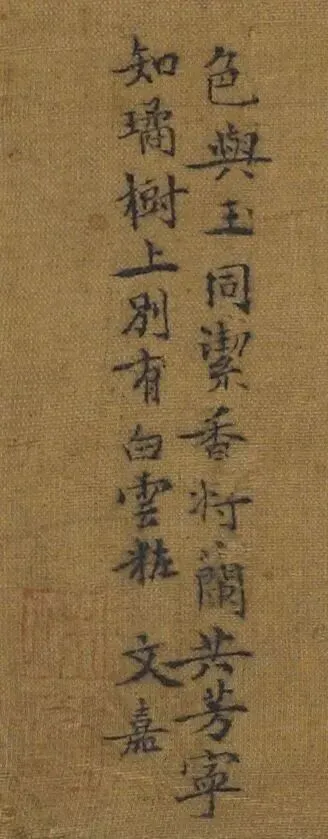 色與玉同潔香將蘭共芳寧
知璚樹上別有白雲粧 文嘉